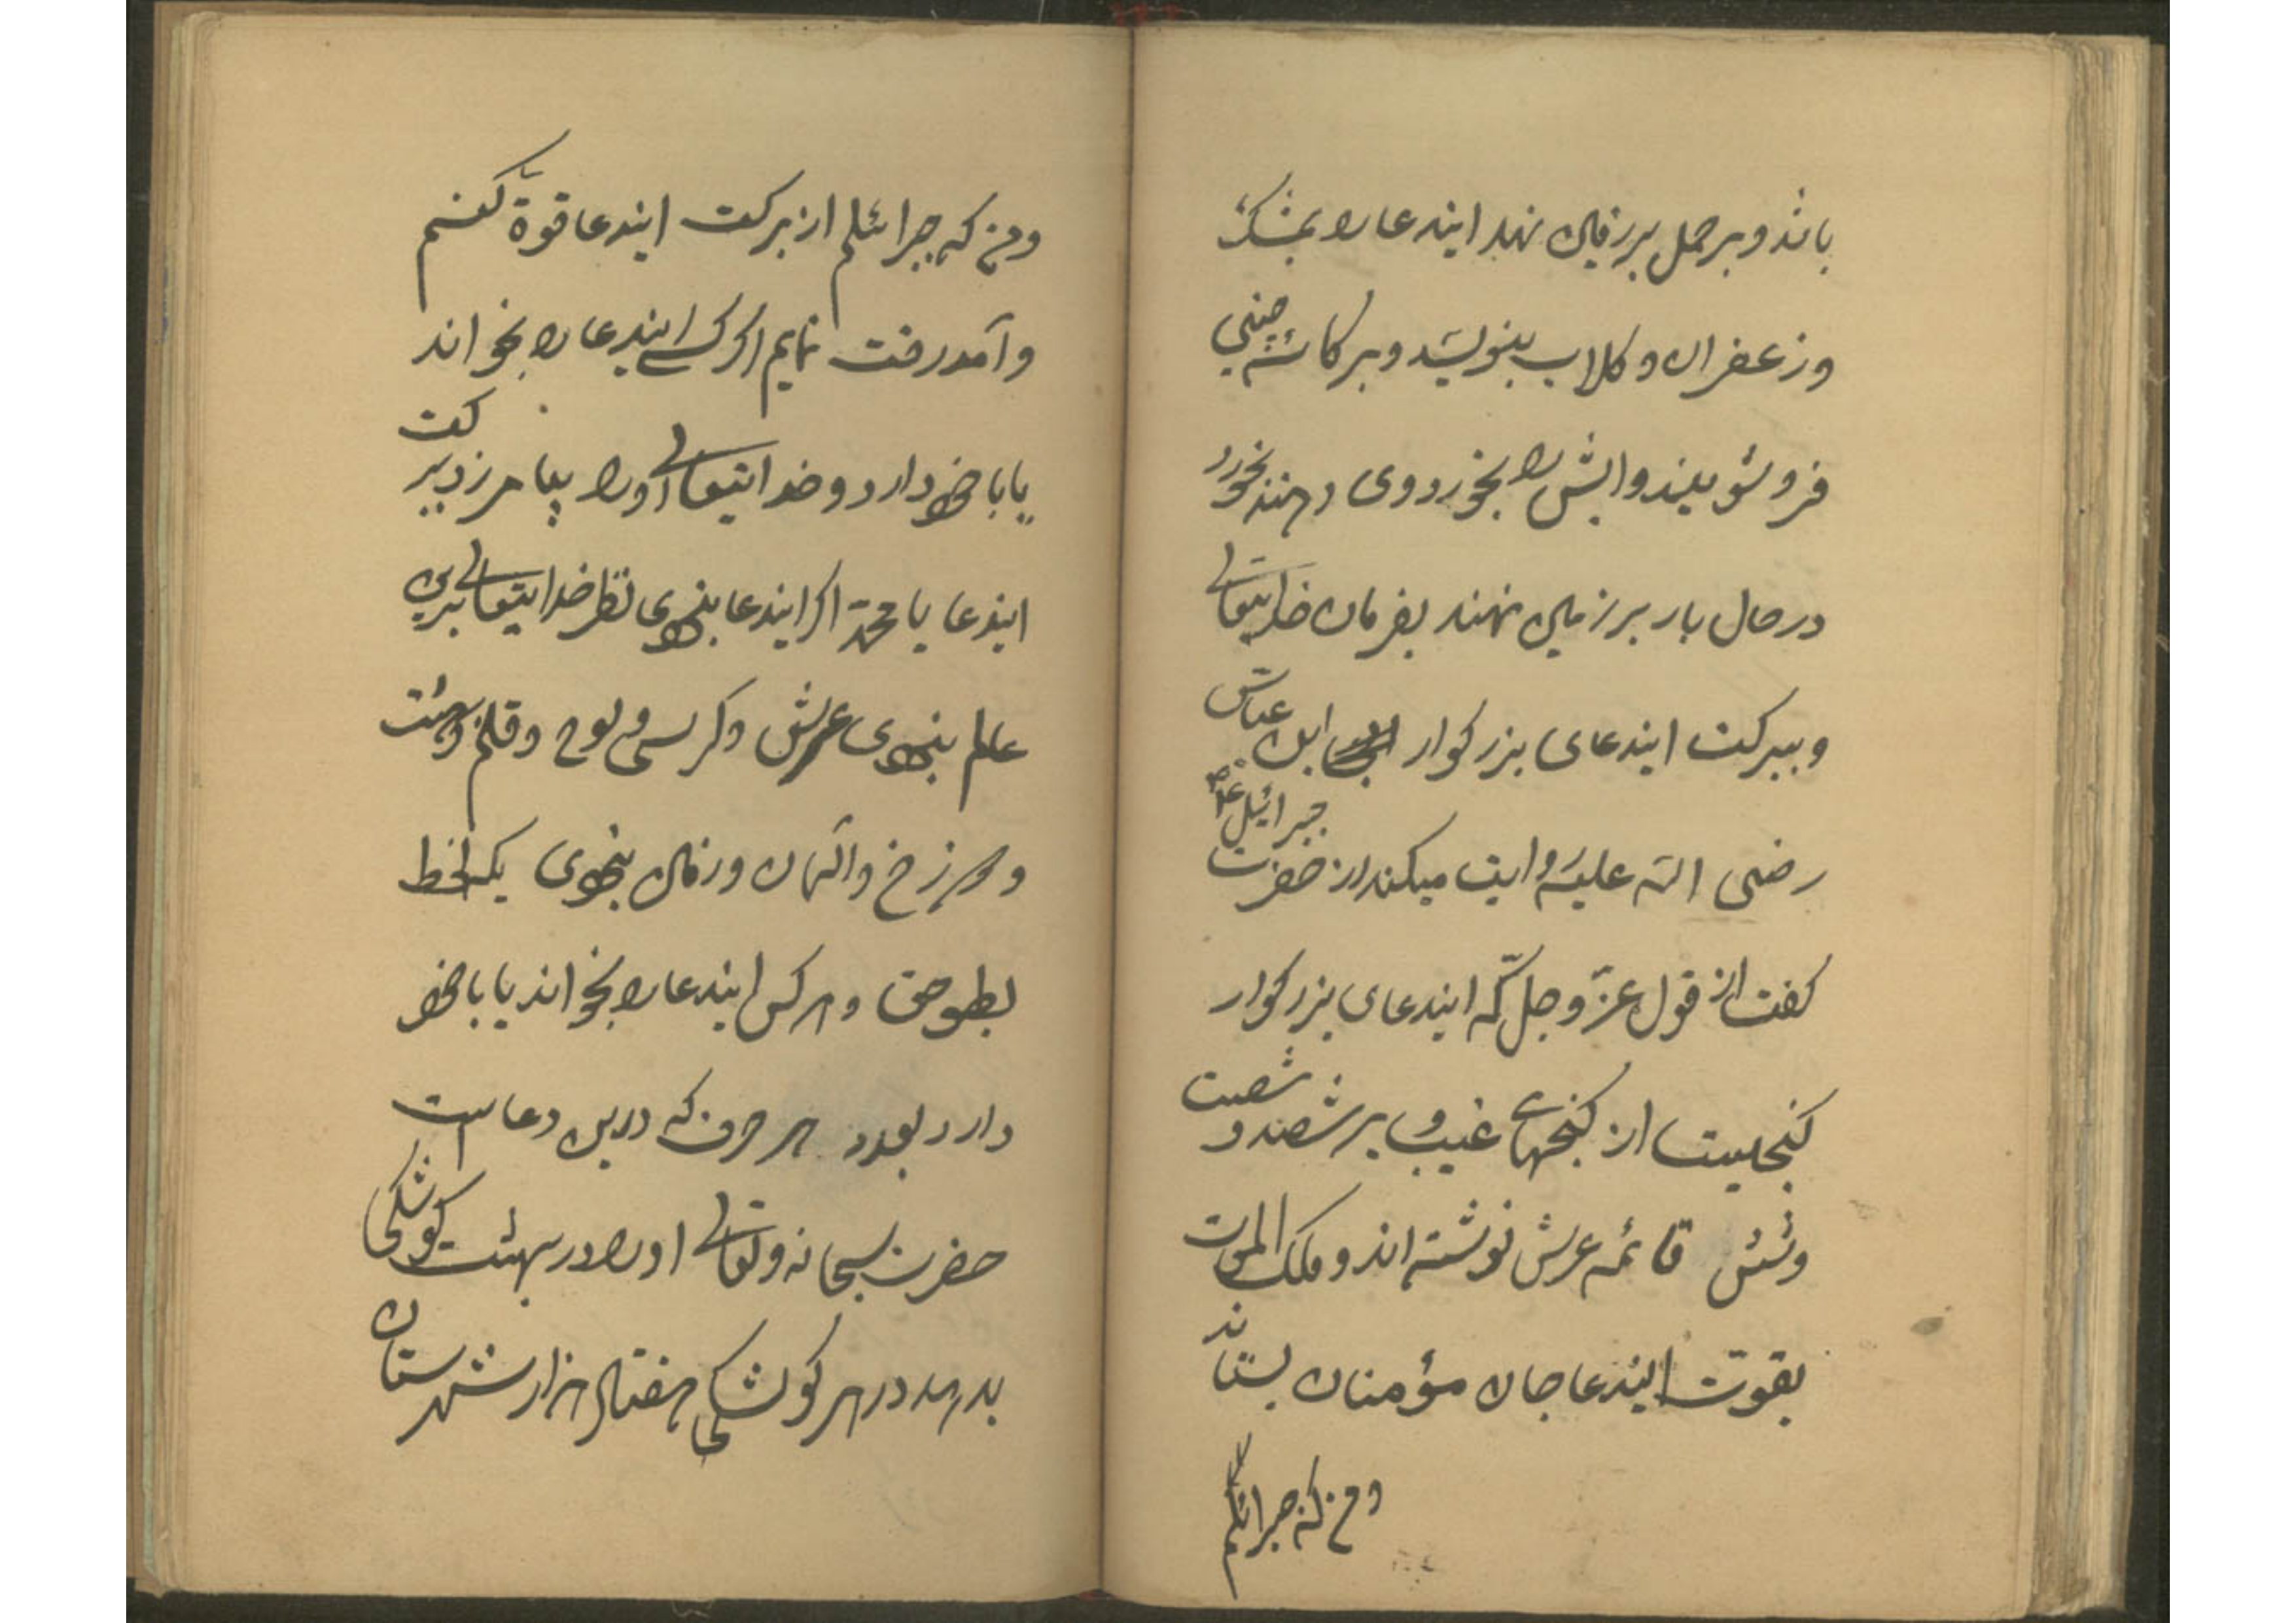 باشد و بر حمل بر زمین نهد ایندعا را بمشک
و زعفران و کلاب بنویسد و بر کاسه چینی
فرو شویند و ابش را بخورد وی دهند بخورد
در حال بار بر زمین نهند بفرمان خدایتعالی
و ببرکت ایندعای بزرکوار ابن عباس
رضی الله علیه روایت میکند از حضرت جبرائیل
کفت از قول عز و جل که ایندعای بزرکوار
کنجیست از کنجهای غیب و بر شصد و شصت
و شش قائمه عرش نوشته اند و ملک الموت
بقوت ایندعا جان مؤمنان بستاند
و من که جبرائیلم
و من که جبرائیلم از برکت ایندعا قوة کنم
و آمد رفت نمایم اکر کسی ایندعا را بخواند
یا با خود دارد و خدایتعالی او را بیامرزد ببرکت
ایندعا یا محمد اکر ایندعا نبودی نظر خدایتعالی برین
عالم نبودی عرش و کرسی و لوح و قلم و بهشت
و دوزخ و آسمان و زمین نبودی یک لحظ
و هر کس ایندعا را بخواند یا با خود
دارد بعدد هر حرف که درین دعا است
حضرت سبحانه و تعالی او را در بهشت کوشکی
بدهد در هر کوشکی هفتاد هزار شهرستان